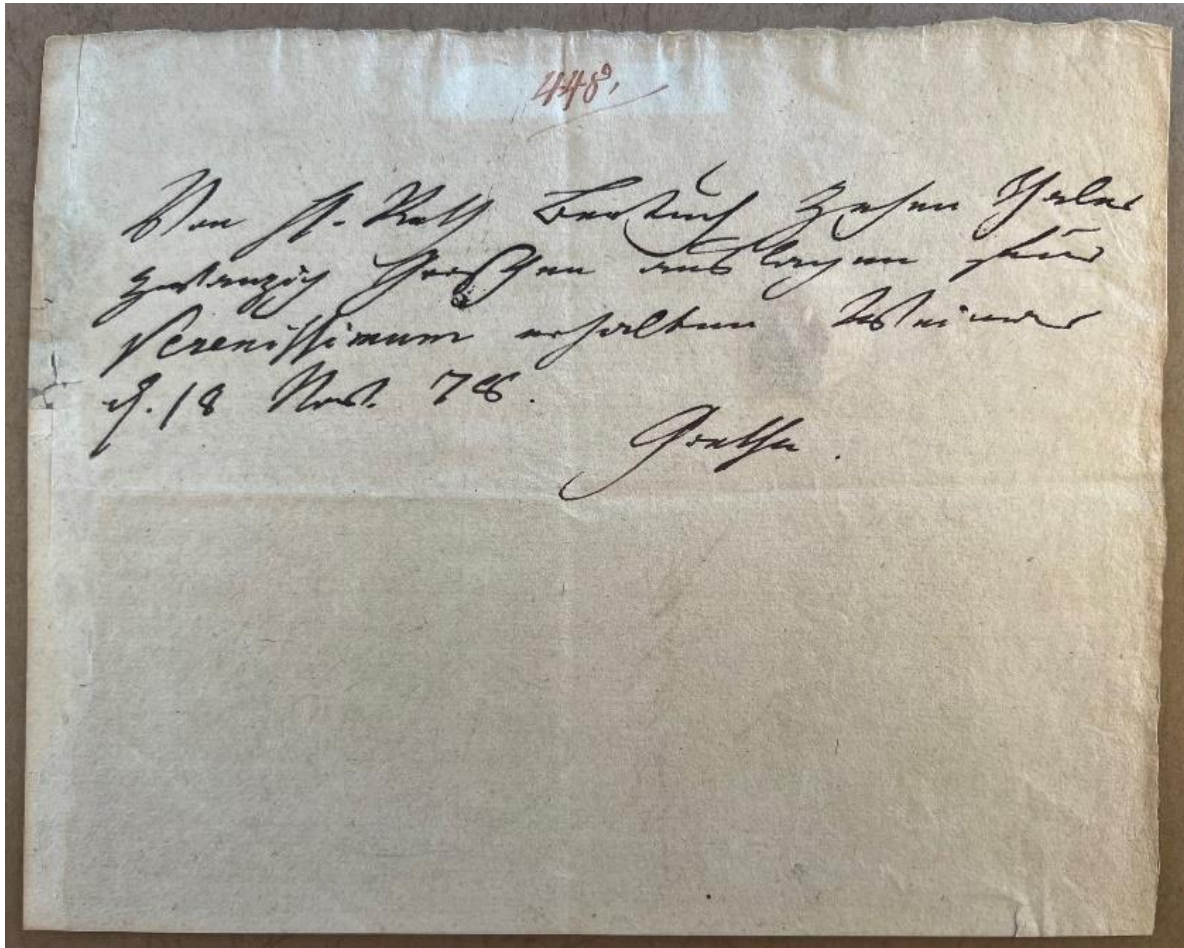 448,
Von H. Rath Bertuch Zehen Thaler
zwanzig Groschen auslagen für
Serenissimum erhalten Weimar
d. 18 Nov. 78.
Goethe.